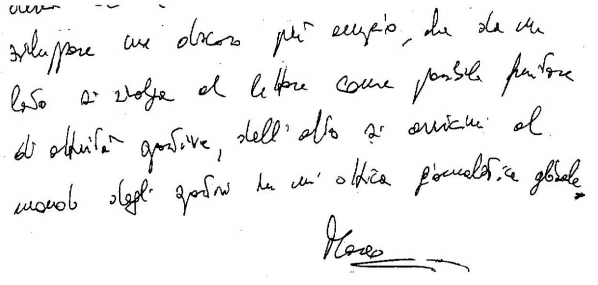 sviluppare un discorso più ampio, che da un
lato si rivolga al lettore come possibile fruitore
di attività sportive, dall'altro si avvicini al
mondo degli sportivi in un'ottica giornalistica globale.
Marco